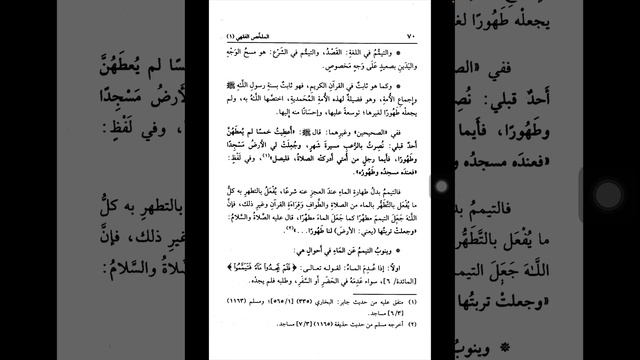 ٧٠ الملخص الفقهي (١)
* والتيممُ في اللغةِ: القَصْدُ، والتيمم في الشَّرْعِ: هو مسحُ الوَجْهِ
واليَدَينِ بصعيدٍ عَلَى وَجهٍ مَخصوصٍ.
* وكما هو ثابتٌ في القرآنِ الكريم، فهو ثابتٌ بسنةِ رسولِ اللَّهِ ﷺ
وإجماعِ الأُمةِ، وهو فضيلةٌ لهذه الأُمةِ المُحَمديةِ، اختصَّها اللَّهُ به، ولم
يجعلْه طَهُورًا لغيرِها؛ توسعةً عليها، وإحسَانًا منه إليها.
ففي «الصحيحين» وغيرِهما: قال ﷺ: «أُعطِيتُ خمسًا لم يُعطَهُنَّ
أحدٌ قبلي: نُصِرتُ بالرُّعبِ مسيرةَ شَهرٍ، وجُعِلَتْ لي الأرضُ مَسْجِدًا
وطَهُورًا، فأيما رجلٍ من أُمتي أدركته الصلاةُ، فليصلِّ»(١)، وفي لَفْظٍ:
«فعنده مسجدُه وطَهُورُه».
فالتيممُ بدلُ طهارةِ الماءِ عندَ العجزِ عنه شرعًا، يُفْعَلُ بالتطهرِ به كلُّ
ما يُفعَل بالتَّطَهُّرِ بالماء من الصلاةِ والطَّوافِ وقراءَةِ القرآنِ وغيرِ ذلك، فإنَّ
اللَّهَ جَعَلَ التيممَ مطهِّرًا كما جعلَ الماءَ مطهِّرًا، قال عليه الصَّلاةُ والسَّلامُ:
«وجعلتْ تربتُها (يعني: الأرضَ) لنا طَهُورًا...»(٢).
* وينوبُ التيممُ عنِ المَاءِ في أحوالٍ هي:
أولاً: إذا عُدِمَ الماءُ؛ لقولِه تعالى: ﴿فَلَمْ تَجِدُوا مَاءً فَتَيَمَّمُوا﴾
[المائدة/٦]، سواء عَدِمَهُ في الحَضَرِ أو السَّفَرِ، وطلبه فلم يجدْه.
(١) متفق عليه من حديث جابر: البخاري (٣٣٥) [٥٦٥/١]؛ ومسلم (١١٦٣)
[٦/٣] مساجد.
(٢) أخرجه مسلم من حديث حذيفة (١١٦٥) [٧/٣] مساجد.